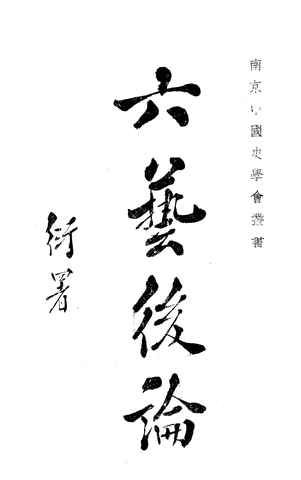 南京中國史學會叢書
六藝後論
衍署